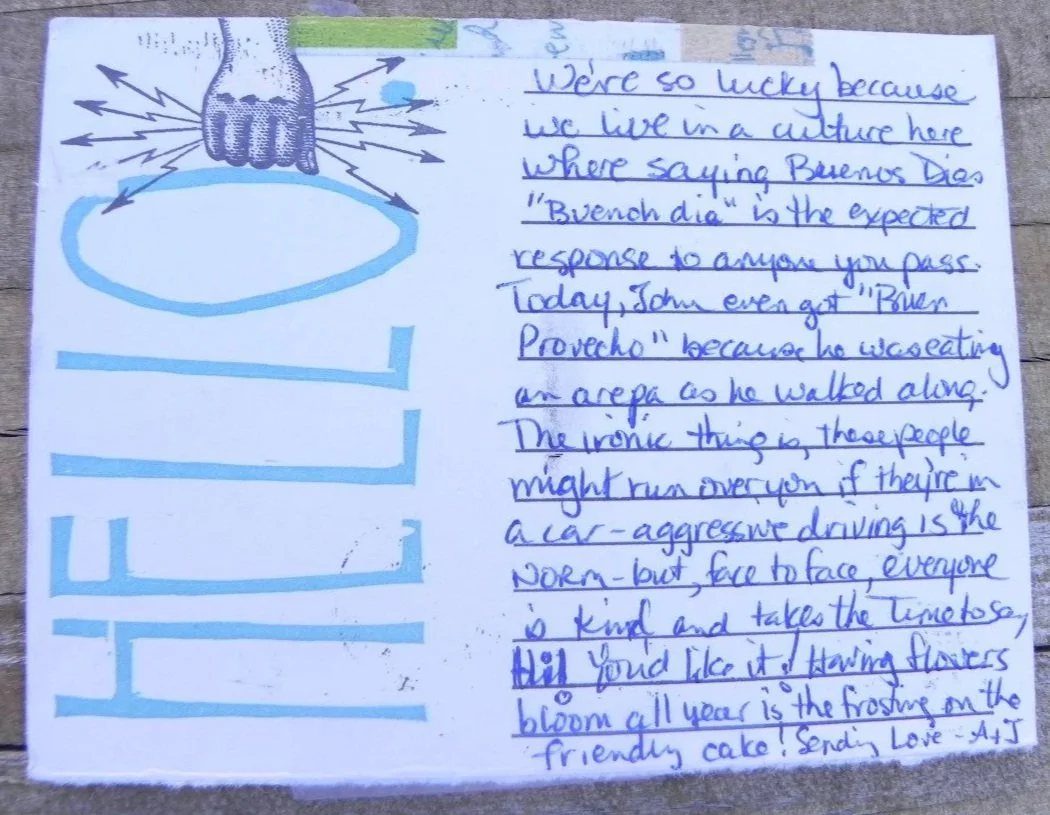 HELLO
We're so lucky because
we live in a culture here
where saying Buenos Dias
"Buenoh dia" is the expected
response to anyone you pass.
Today, John even got "Buen
Provecho" because he was eating
an arepa as he walked along.
The ironic thing is, these people
might run over you if they're in
a car - aggressive driving is the
NORM - but, face to face, everyone
is kind and takes the Time to say
Hi! You'd like it! Having flowers
bloom all year is the frosting on the
friendly cake! Sending Love - A+J